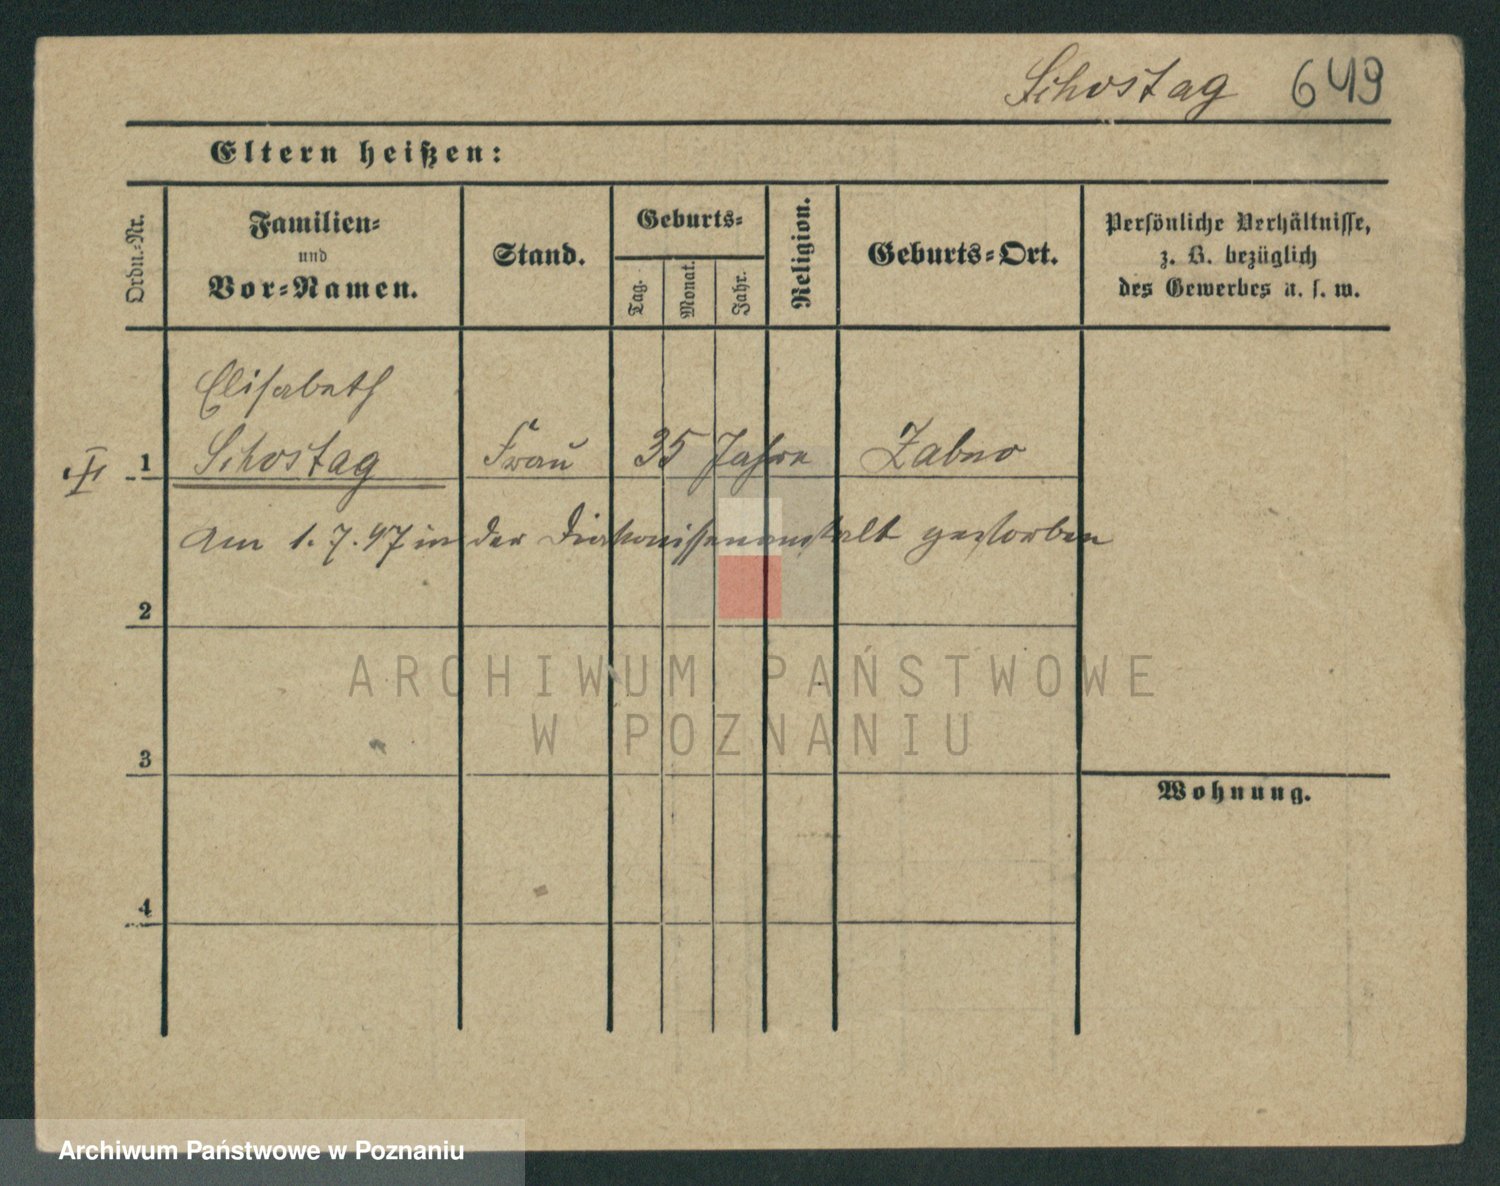 Schostag 649
Eltern heißen:
Ordn.-Nr.
Familien-
und
Vor-Namen.
Stand.
Geburts-
Tag.
Monat.
Jahr.
Religion.
Geburts-Ort.
Persönliche Verhältnisse,
z. B. bezüglich
des Gewerbes u. s. w.
Elisabeth
1 Schostag Frau 35 Jahre Zabno
Am 1.7.97 in der Diakonissenanstalt gestorben
2
ARCHIWUM PAŃSTWOWE
W POZNANIU
3
Wohnung.
4
Archiwum Państwowe w Poznaniu